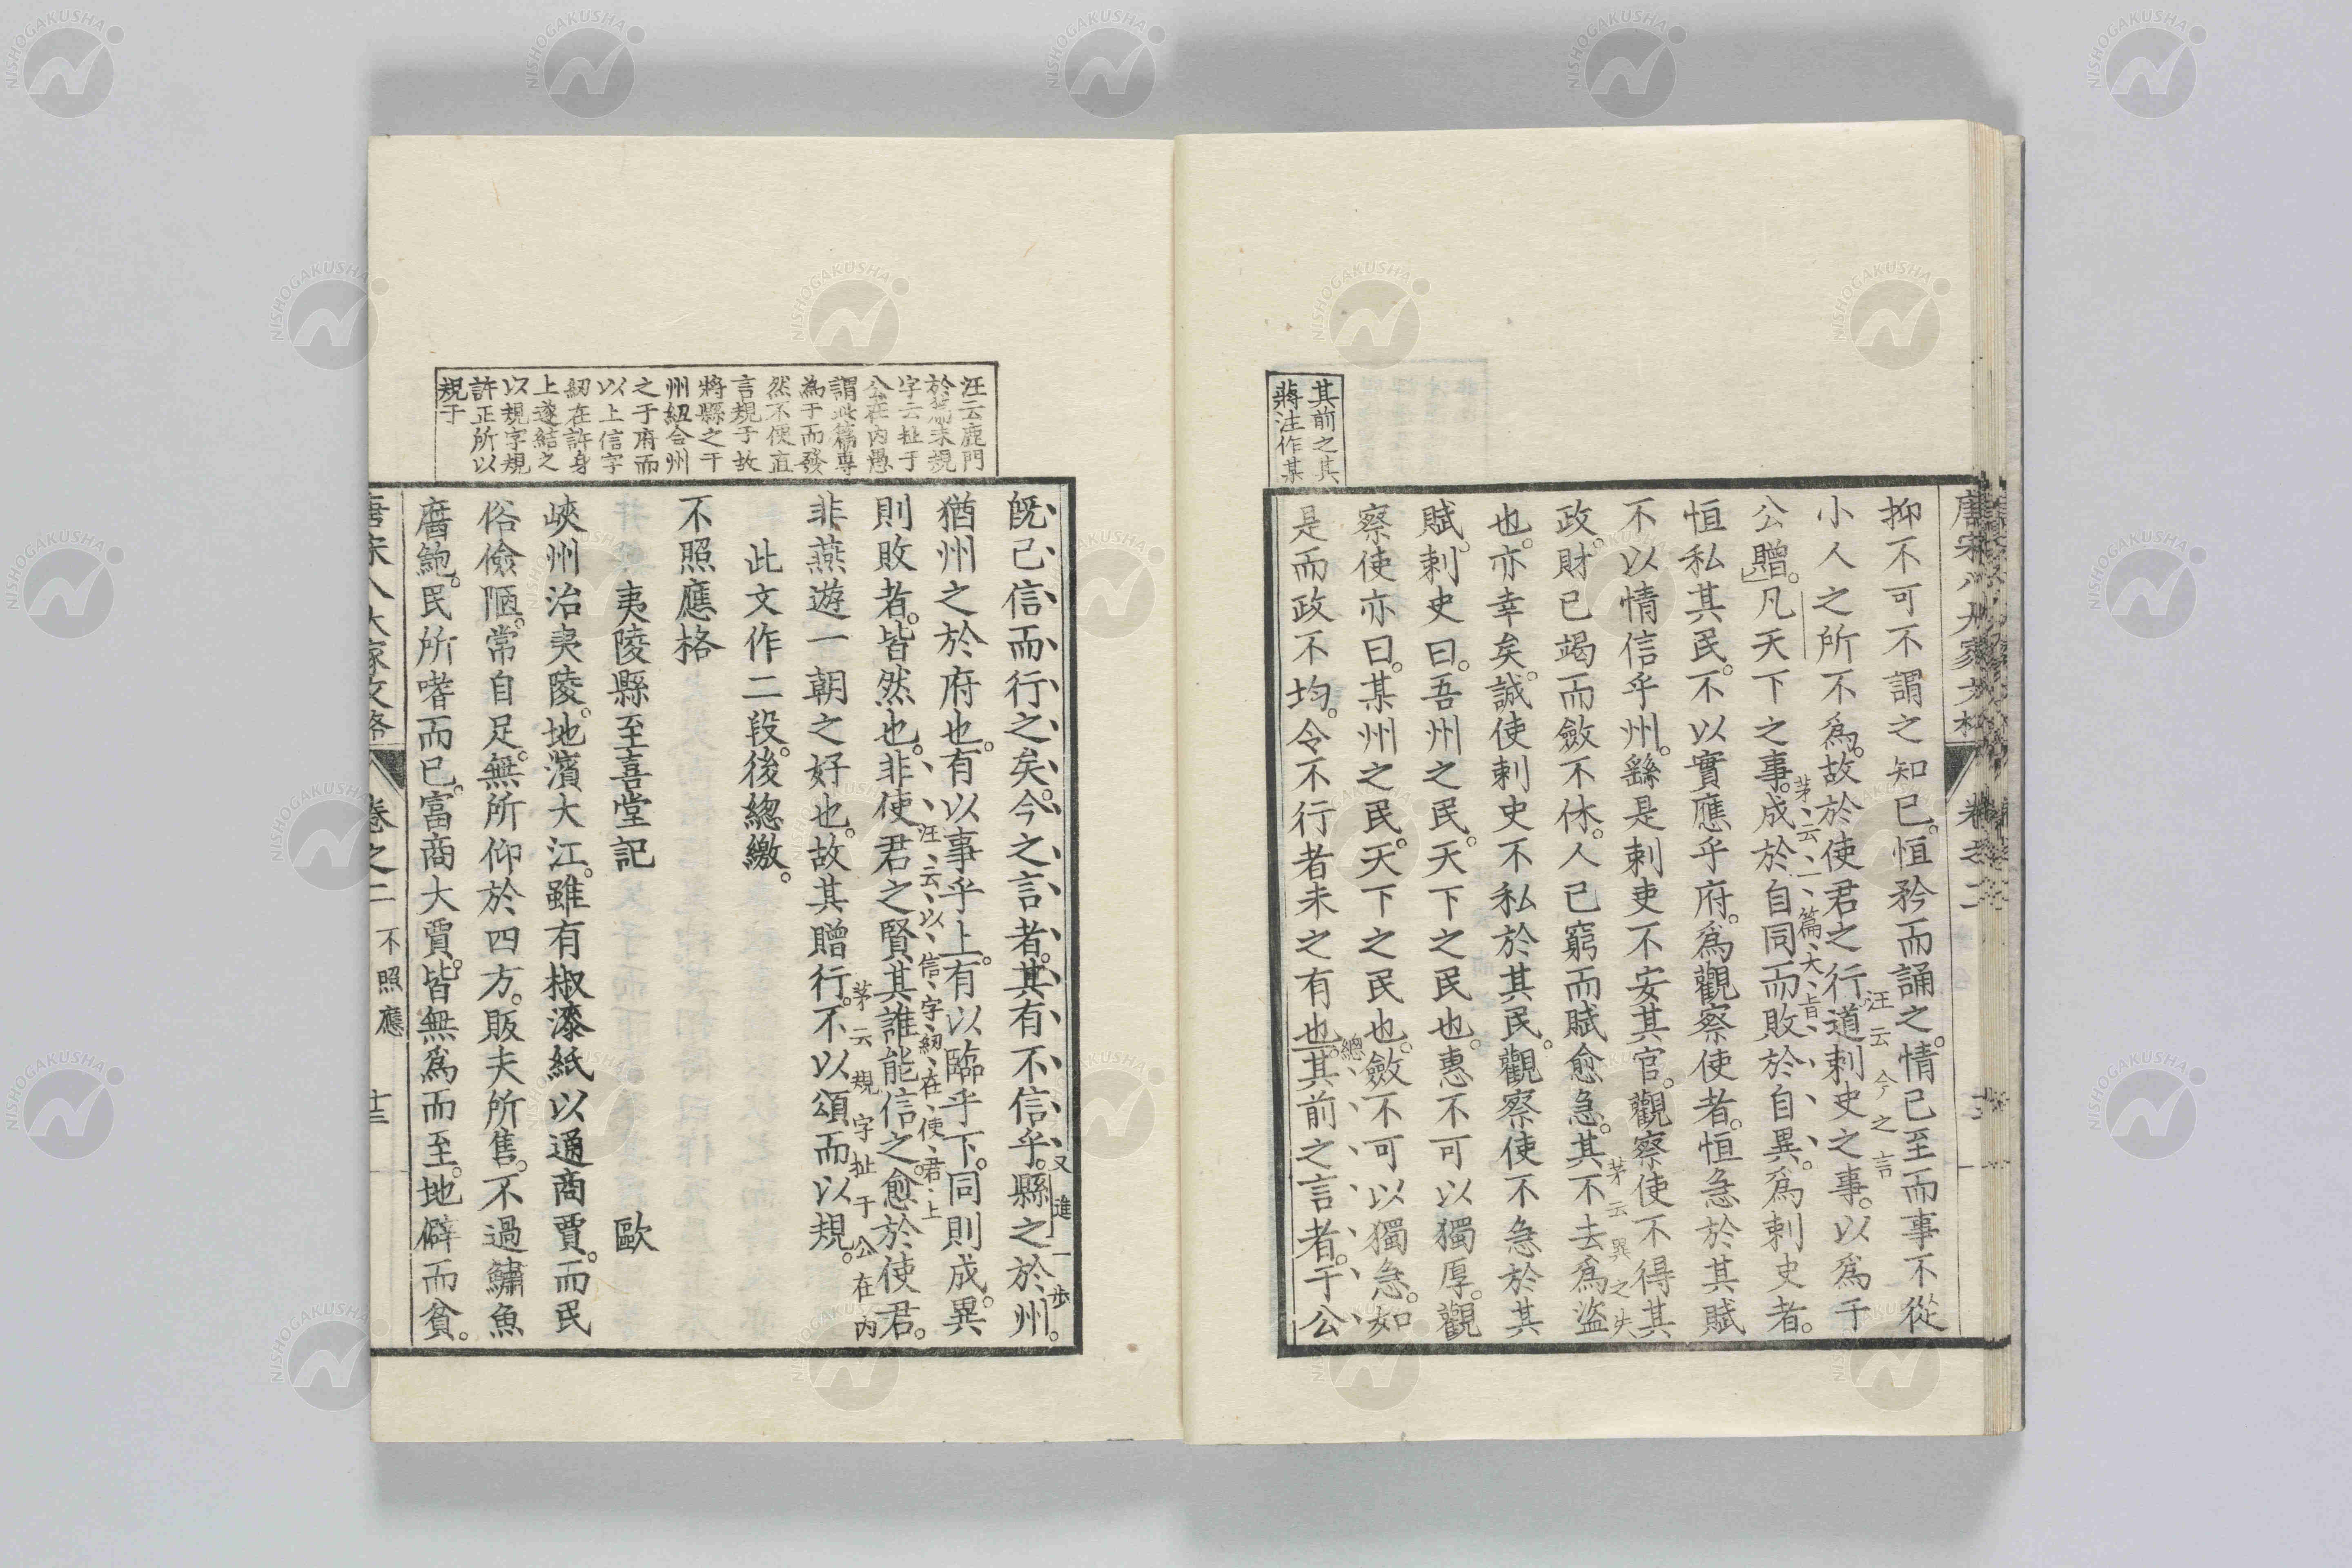 唐宋八大家文格
卷之二
抑不可不謂之知已。恒矜而誦之。情已至而事不從
小人之所不爲。故於使君之行。道刺史之事。以爲于
汪云今之言
公贈。凡天下之事。成於自同而敗於自異。爲刺史者。
茅云一篇大旨
恒私其民。不以實應乎府。爲觀察使者。恒急於其賦
不以情信乎州。繇是刺吏不安其官。觀察使不得其
政。財已竭而斂不休。人已窮而賦愈急。其不去爲盜
茅云異之失
也。亦幸矣。誠使刺史不私於其民。觀察使不急於其
賦。刺史曰。吾州之民。天下之民也。惠不可以獨厚。觀
察使亦曰。某州之民。天下之民也。斂不可以獨急。如
是而政不均。令不行者未之有也。其前之言者。于公
總
其前之其
蔣注作某
旣已信而行之矣。今之言者。其有不信乎。縣之於州。
又進一步
猶州之於府也。有以事乎上。有以臨乎下。同則成。異
則敗者。皆然也。非使君之賢。其誰能信之。愈於使君。
汪云以信字紉在使君上
非燕遊一朝之好也。故其贈行。不以頌而以規。
茅云規字扯于公在內
此文作二段。後總繳。
不照應格
夷陵縣至喜堂記　歐
峽州治夷陵。地濱大江。雖有椒漆紙以通商賈。而民
俗儉陋。常自足。無所仰於四方。販夫所售。不過鱐魚
腐鮑。民所嗜而已。富商大賈。皆無爲而至。地僻而貧。
唐宋八大家文格
卷之二
不照應
十三
汪云鹿門
於篇末規
字云扯于
公在內愚
謂此篇專
為于而發
然不便直
言規于故
將縣之于
州紐合州
之于府而
以上信字
紉在許身
上遂結之
以規字規
許正所以
規于